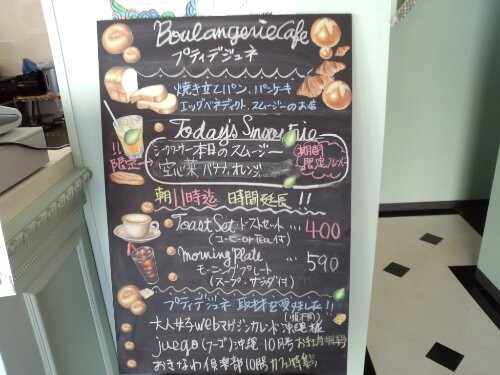 BoulangerieCafe
プティデジュネ
焼き立てパン、パンケーキ
エッグベネディクト、スムージーのお店
Today's Smoothie
!!
限定→
本日のスムージー
空心菜、バナナ、オレンジ
期間
限定フレーバー
朝11時迄 時間延長!!
Toast Set トーストセット … 400
(コーヒーor Tea付)
morning Plate … 590
モーニングプレート
(スープ、サラダ付)
プティデジュネ 取材を受けました!!
大人女子webマガジンカレンド沖縄様
juego(フーゴ)沖縄 10月号
おきなわ倶楽部10月 カフェ特集